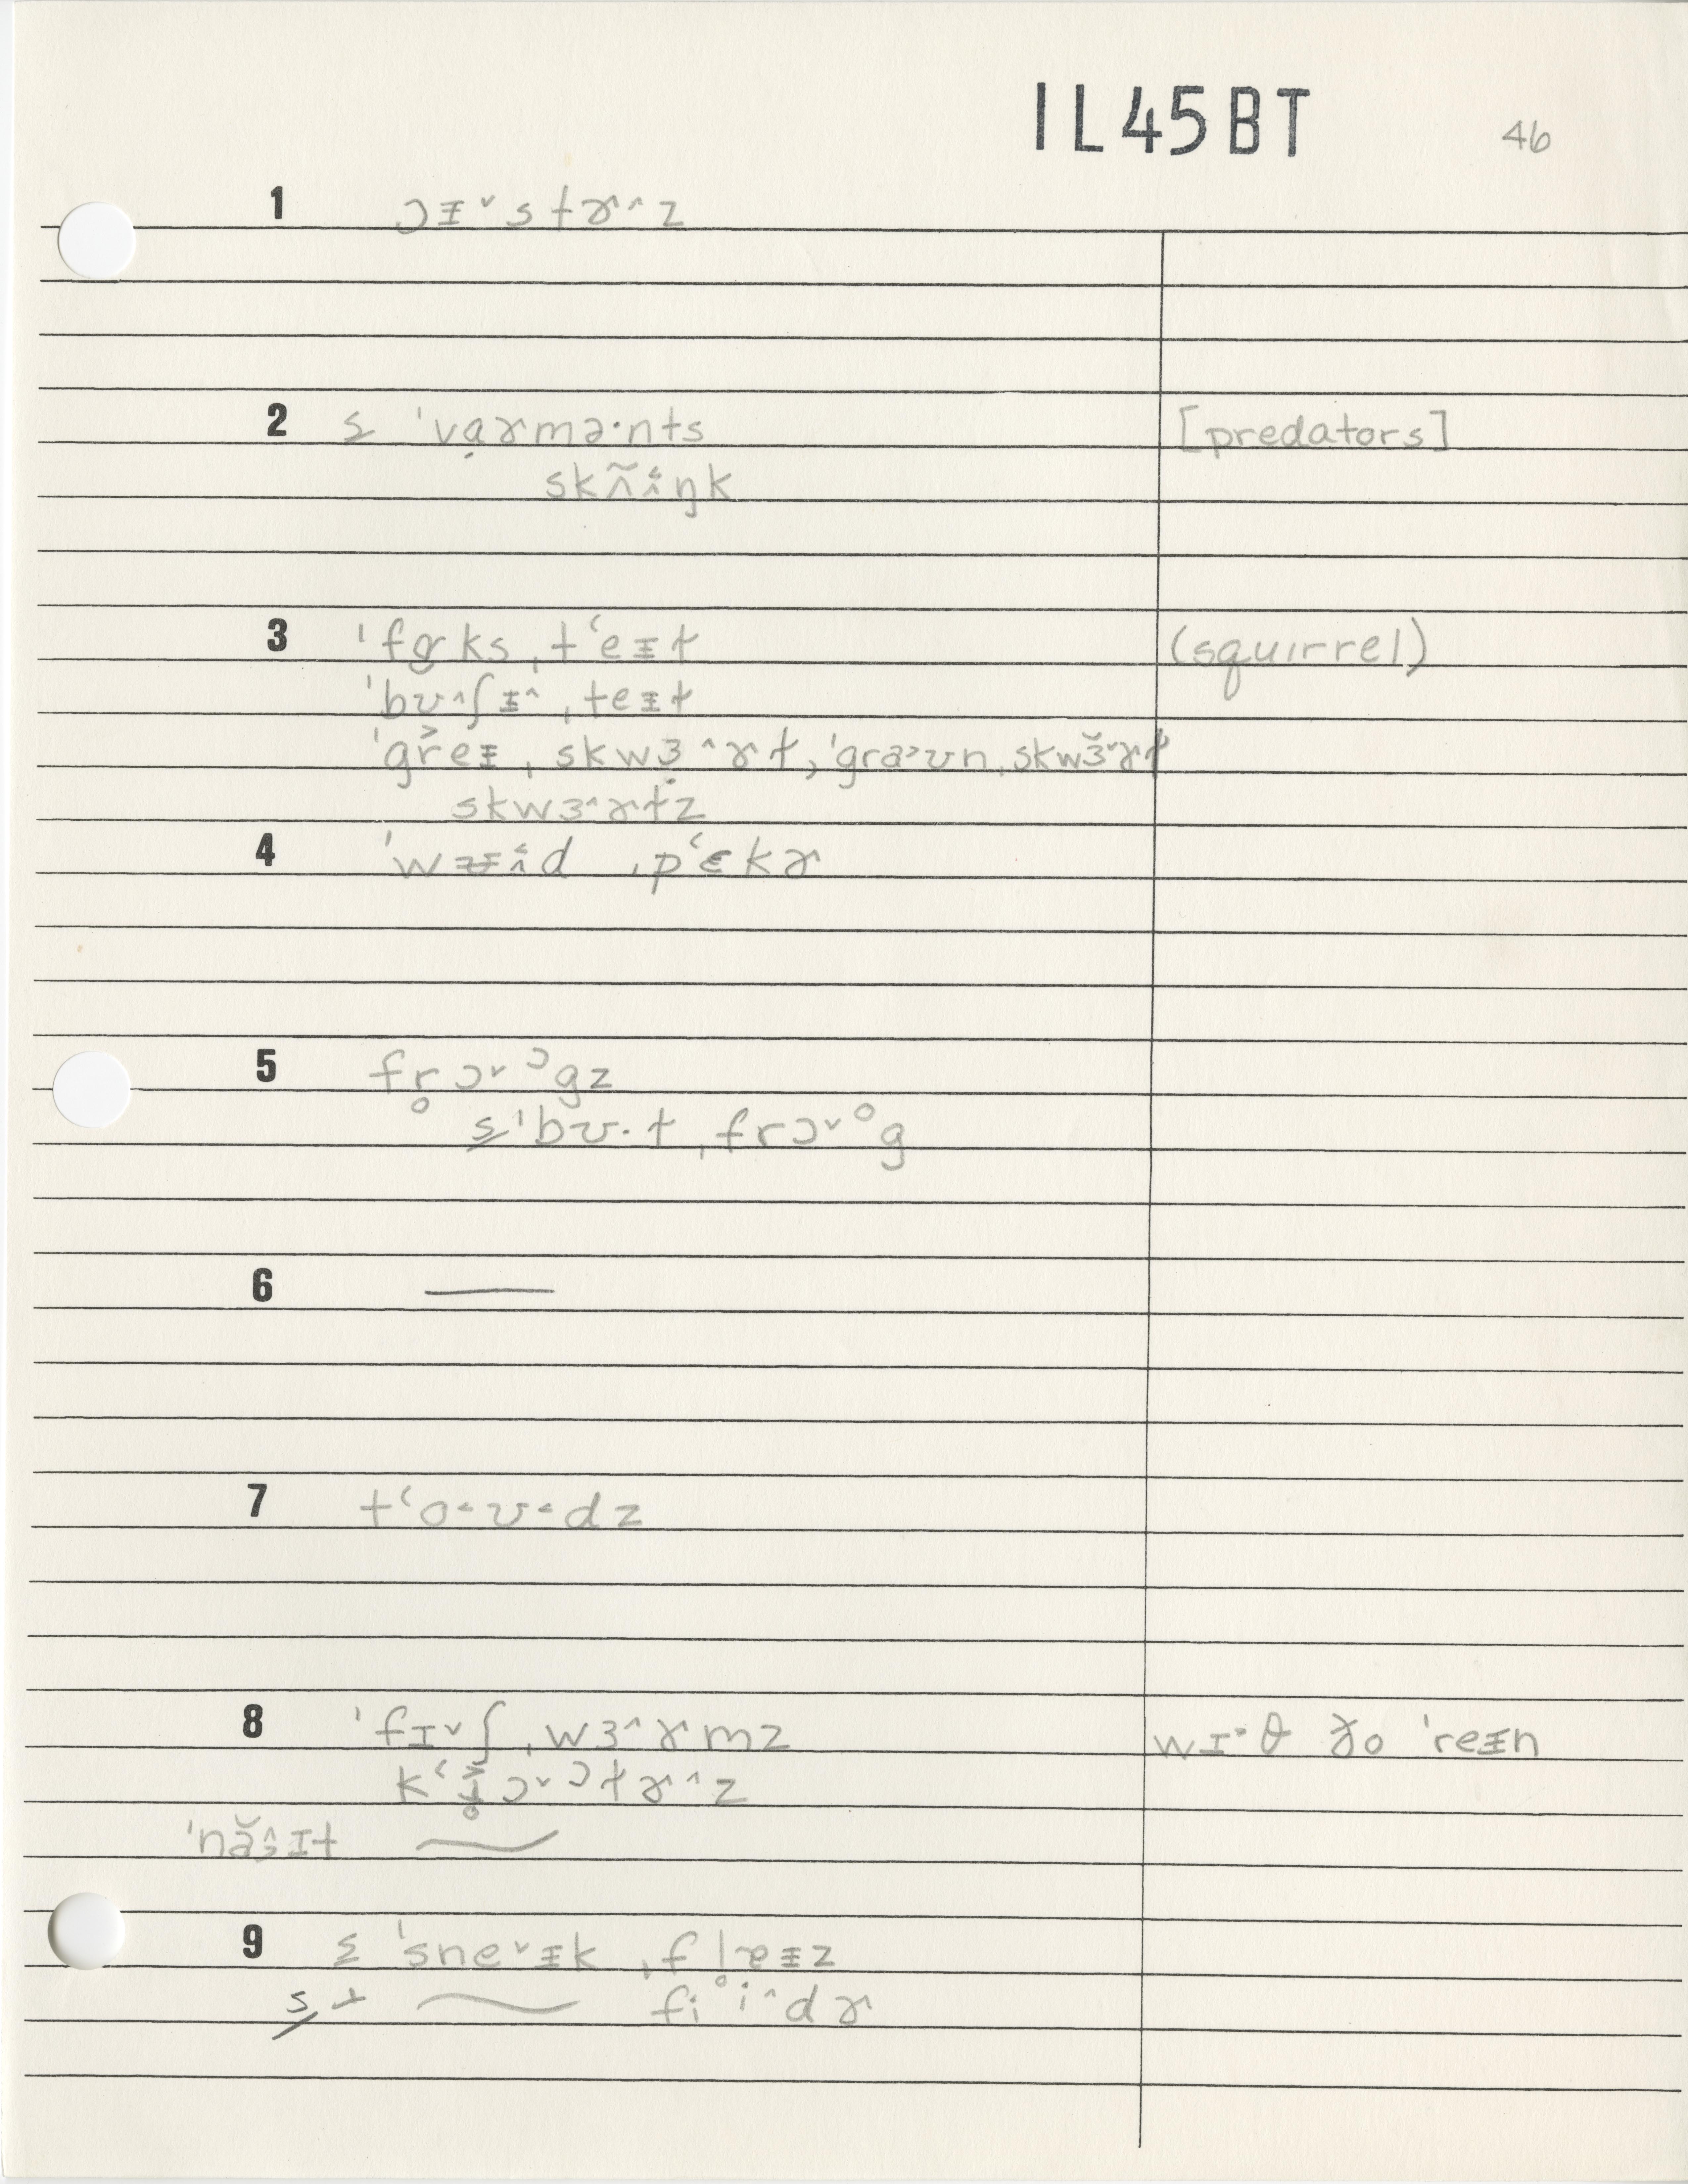 IL45BT 46
1 ɔᵻ˅stɚ˄z
2 ꜱ ˈvạɚmə·nts [predators]
skʌ̃ɨ̃ŋk
3 ˈfɑks ˌtʻeᵻɫ (squirrel)
ˈbʊ˄ʃᵻ˄ ˌteᵻɫ
ˈgr̆eᵻ ˌskwɜ˄ɚɫ, ˈgra˃ʊn ˌskwɜ˅ɚɫ
skwɜ˄ɚɫz
4 ˈwʊd ˌpʻɛkɚ
5 fr̥ɔ˅ᵓgz
s ˈbʊ·ɫ ˌfrɔ˅ᵒg
6 —
7 tʻo˂ʊ˂dz
8 ˈfɪ˅ʃ ˌwɜ˄ɚmz wɪ·θ ɚo ˈreᵻn
kʻr̥ɔ˅ᵓɫɚ˄z
ˈnă̂ɪt ~
9 Σ ˈsne˅ᵻk ˌfl̥eᵻz
s ⊥ ~ fi i˄dɚ